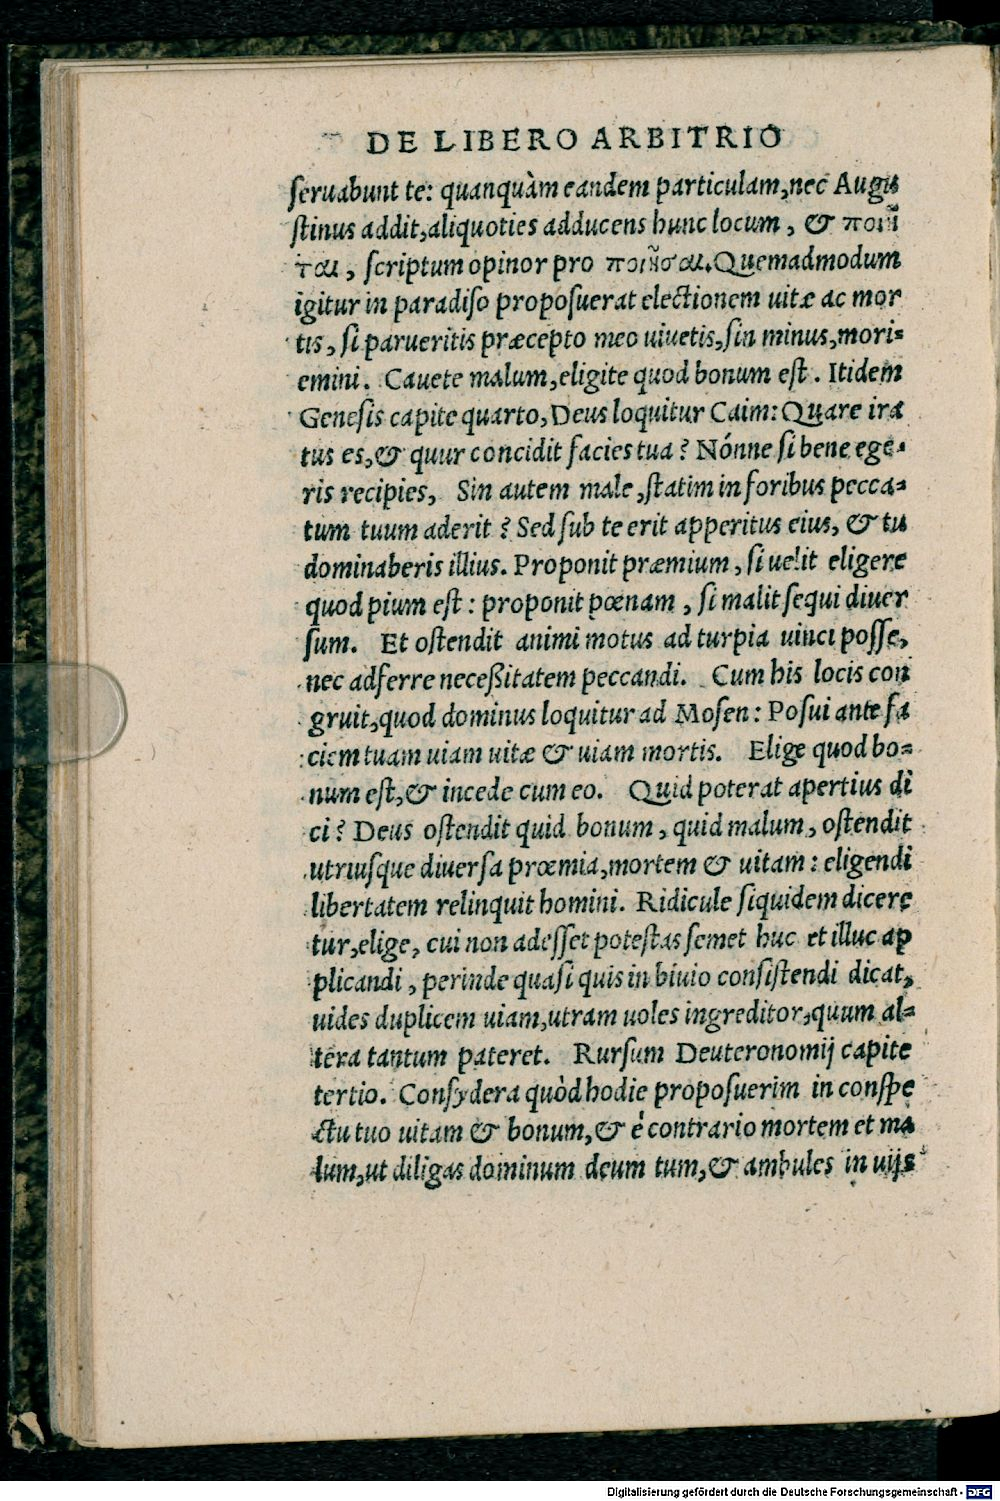 DE LIBERO ARBITRIO
ſeruabunt te: quanquàm eandem particulam, nec Augu
ſtinus addit, aliquoties adducens hunc locum, & ποιη̃
ται, ſcriptum opinor pro ποιη̃σαι. Quemadmodum
igitur in paradiſo propoſuerat electionem uitæ ac mor
tis, ſi parueritis præcepto meo uiuetis, ſin minus, mori=
emini. Cauete malum, eligite quod bonum eſt. Itidem
Geneſis capite quarto, Deus loquitur Caim: Quare ira
tus es, & quur concidit facies tua? Nónne ſi bene ege=
ris recipies, Sin autem male, ſtatim in foribus pecca=
tum tuum aderit? Sed ſub te erit apperitus eius, & tu
dominaberis illius. Proponit præmium, ſi uelit eligere
quod pium eſt: proponit pœnam, ſi malit ſequi diuer
ſum. Et oſtendit animi motus ad turpia uinci poſſe,
nec adferre neceßitatem peccandi. Cum his locis con
gruit, quod dominus loquitur ad Moſen: Poſui ante fa
ciem tuam uiam uitæ & uiam mortis. Elige quod bo=
num eſt, & incede cum eo. Quid poterat apertius di
ci? Deus oſtendit quid bonum, quid malum, oſtendit
utriuſque diuerſa prœmia, mortem & uitam: eligendi
libertatem relinquit homini. Ridicule ſiquidem dicere
tur, elige, cui non adeſſet poteſtas ſemet huc et illuc ap
plicandi, perinde quaſi quis in biuio conſiſtendi dicat,
uides duplicem uiam, utram uoles ingreditor, quum al=
tera tantum pateret. Rurſum Deuteronomij capite
tertio. Conſydera quòd hodie propoſuerim in conſpe
ctu tuo uitam & bonum, & è contrario mortem et ma
lum, ut diligas dominum deum tum, & ambules in uijs
Digitalisierung gefördert durch die Deutsche Forschungsgemeinschaft - DFG